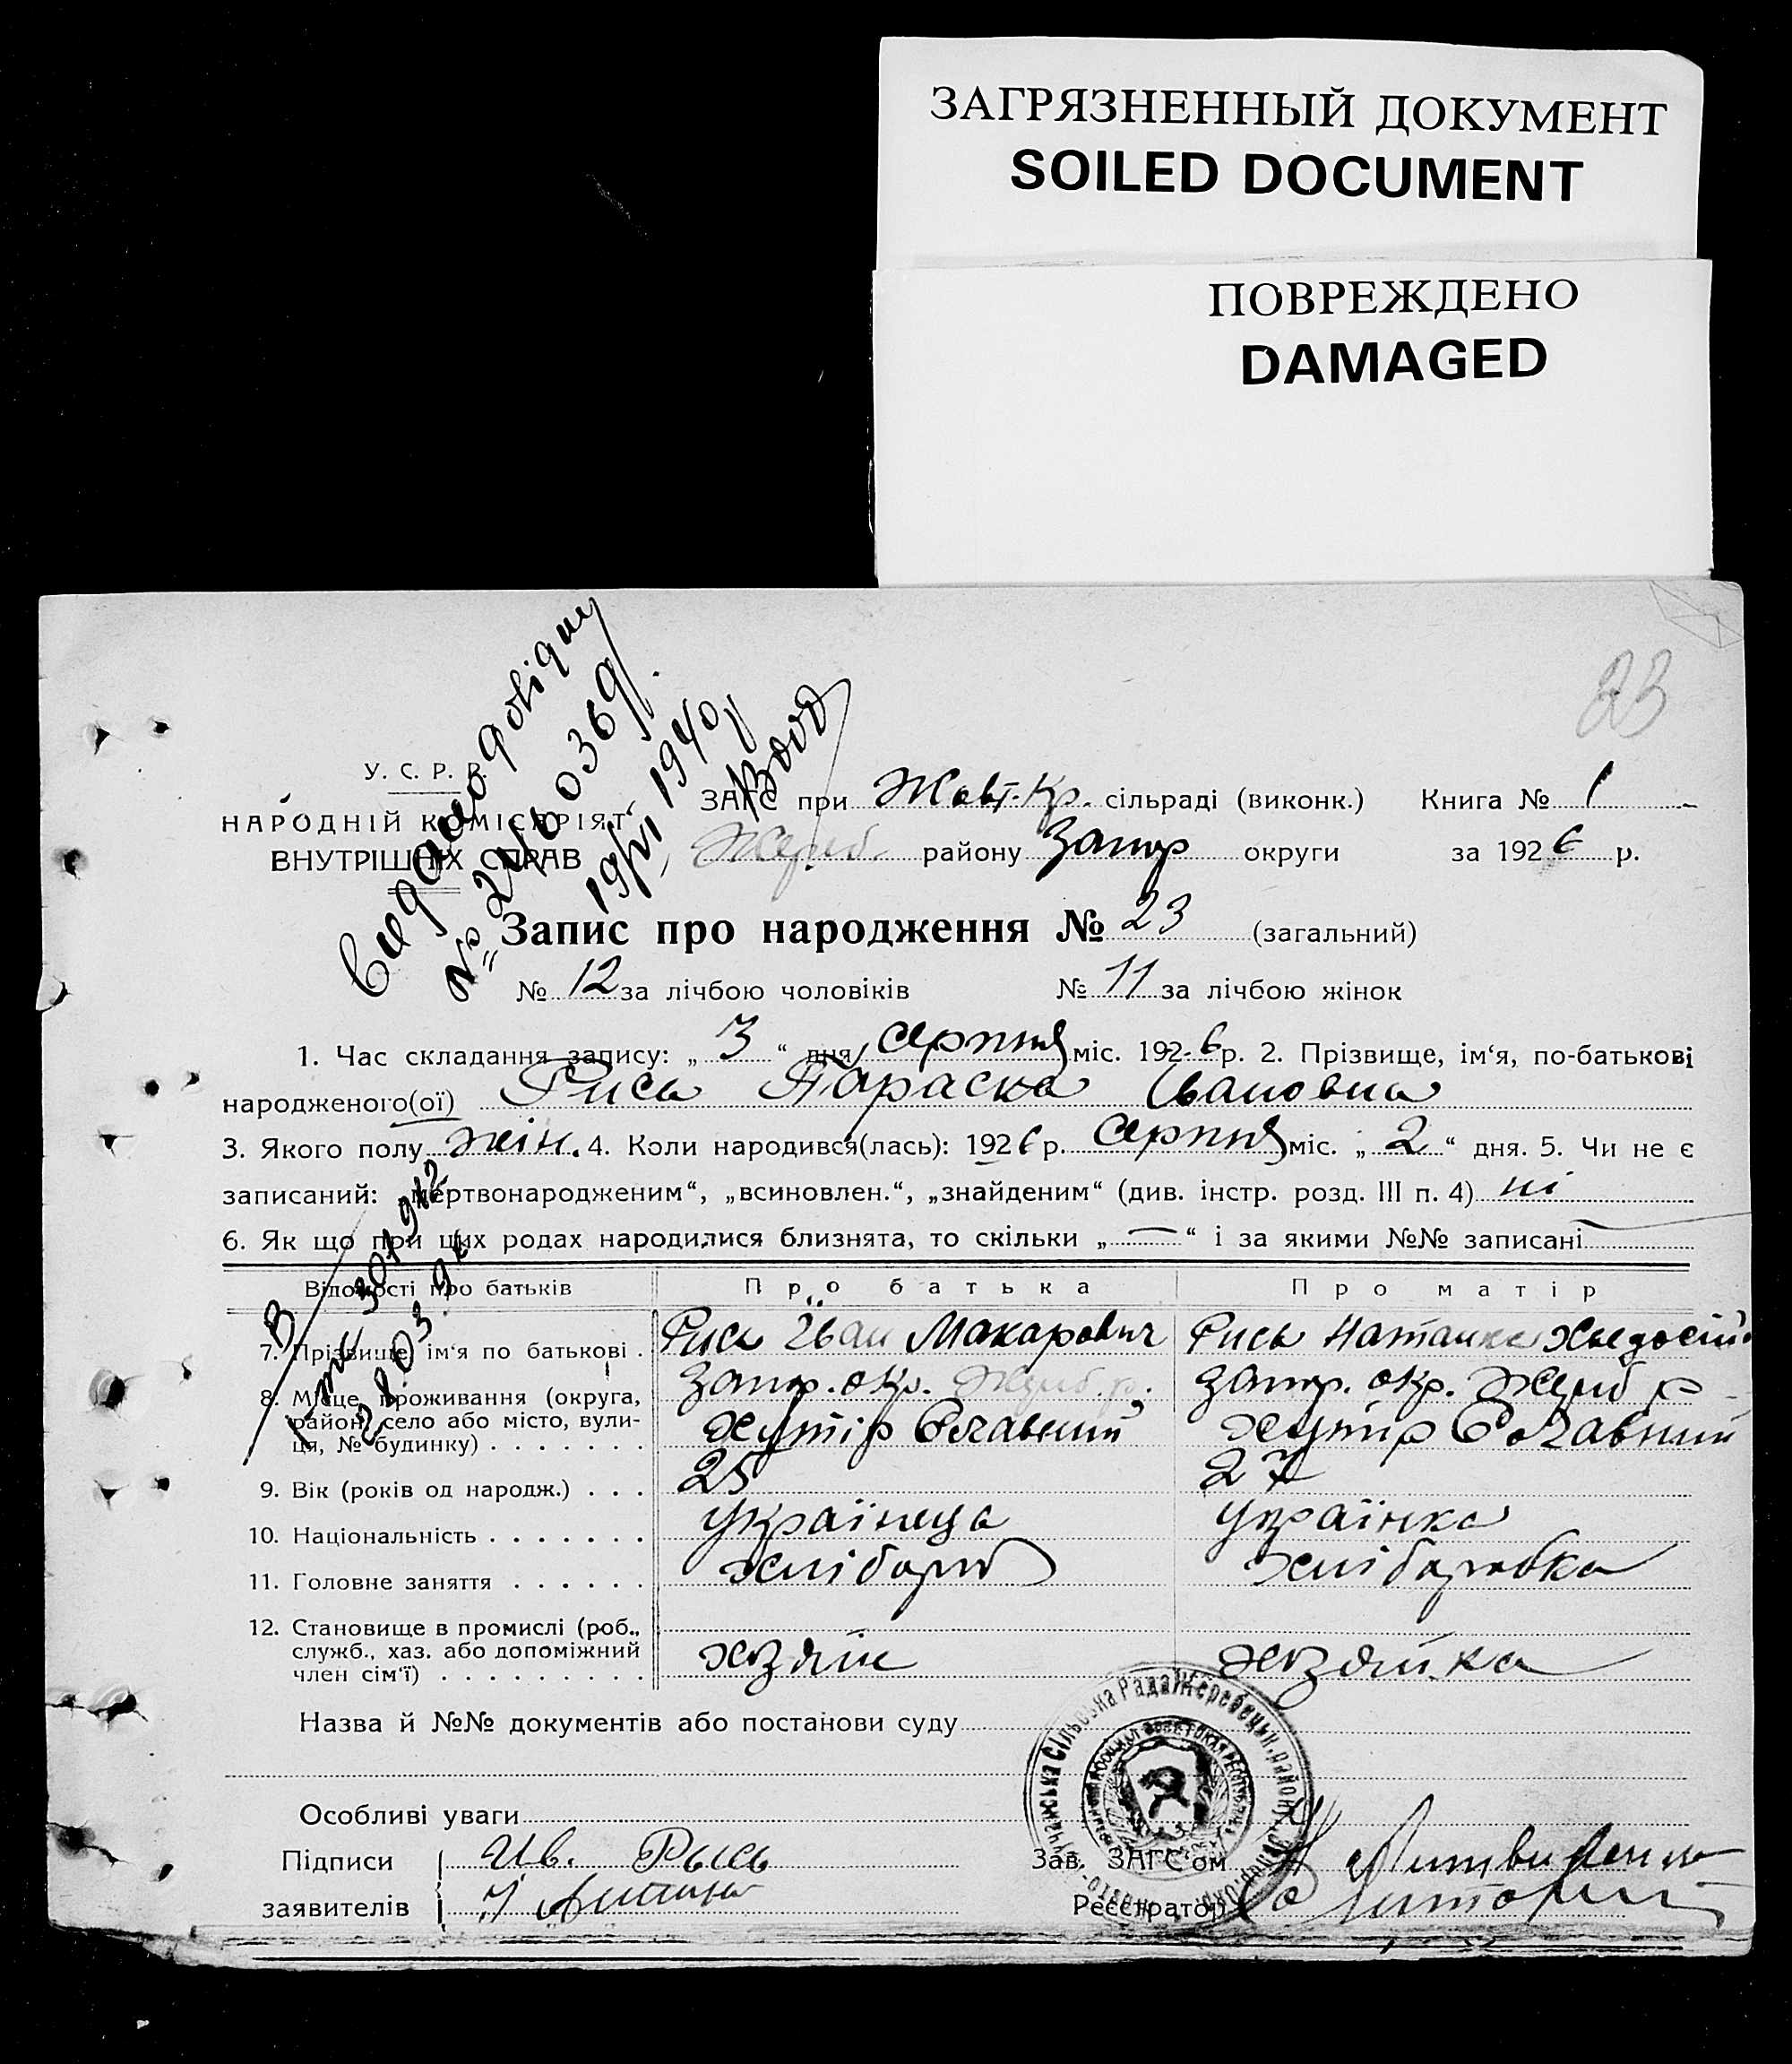 ЗАГРЯЗНЕННЫЙ ДОКУМЕНТ
SOILED DOCUMENT
ПОВРЕЖДЕНО
DAMAGED
23
У. С. Р. Р.
НАРОДНІЙ КОМІСАРІЯТ
ВНУТРІШНІХ СПРАВ
№ 2460369
19/VI 1940
ЗАГС при Жовт.-Кр. сільраді (виконк.) Книга № 1
Жереб. району Запор округи за 1926 р.
Запис про народження № 23 (загальний)
№ 12 за лічбою чоловіків № 11 за лічбою жінок
1. Час складання запису: „ 3 “ дня серпня міс. 192 6 р. 2. Прізвище, ім‘я, по-батькові
народженого(ої) Рись Параска Івановна
3. Якого полу жін. 4. Коли народився(лась): 1926 р. Серпня міс. „ 2 “ дня. 5. Чи не є
записаний: „мертвонародженим“, „всиновлен.“, „знайденим“ (див. інстр. розд. III п. 4) ні
6. Як що при цих родах народилися близнята, то скільки „ — “ і за якими №№ записані
Відомості про батьків Про батька Про матір
7. Прізвище, ім‘я по батькові . Рись Іван Макарович Рись Наталка
8. Місце проживання (округа, район, село або місто, вулиця, № будинку) Запор. окр. Жереб. р. хутір Запор. окр. Жереб р хутір
9. Вік (років од народж.) . . . 25 27
10. Національність . . . . . . . українець українка
11. Головне заняття . . . . . . хлібороб хліборобка
12. Становище в промислі (роб., служб., хаз. або допоміжний член сім‘ї) . . . . . . . . . хозяїн хозяйка
Назва й №№ документів або постанови суду
Особливі уваги
Підписи Ив. Рысь Зав. ЗАГС‘ом Литвиненко
заявителів Реєстратор
Сільська Рада Жеребецьк. району